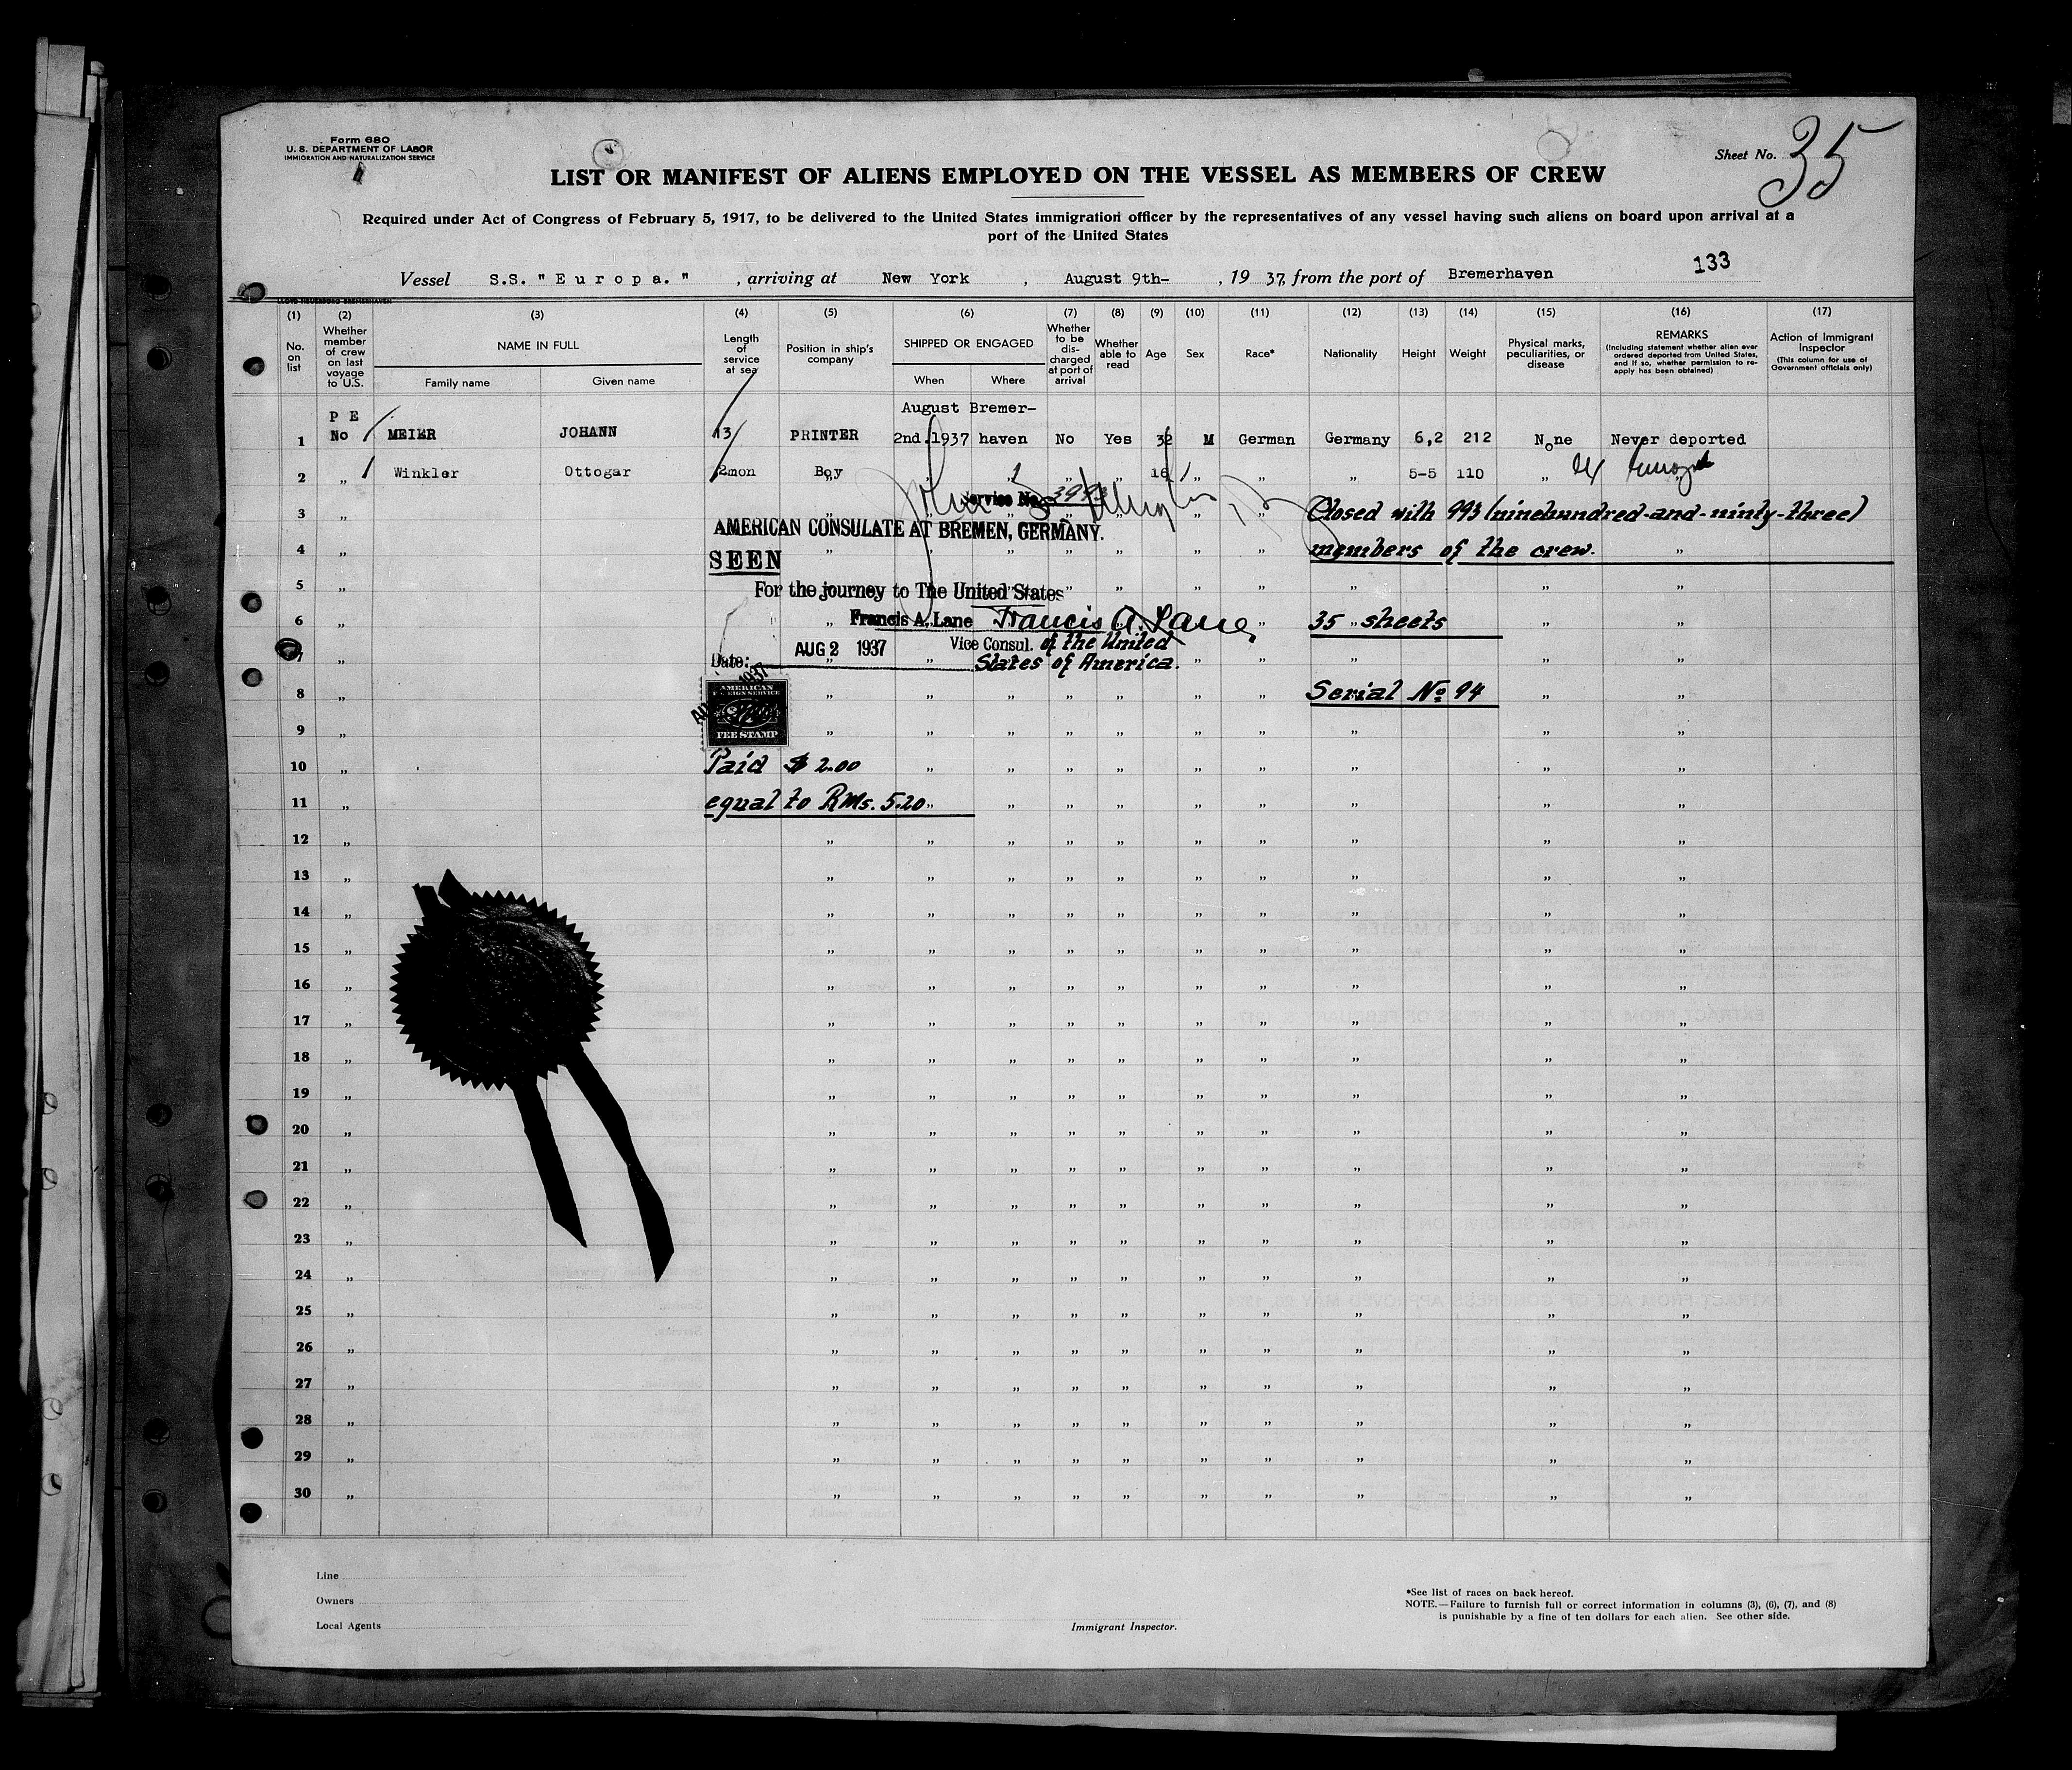 Form 680
U. S. DEPARTMENT OF LABOR
IMMIGRATION AND NATURALIZATION SERVICE
Sheet No. 35
LIST OR MANIFEST OF ALIENS EMPLOYED ON THE VESSEL AS MEMBERS OF CREW
Required under Act of Congress of February 5, 1917, to be delivered to the United States immigration officer by the representatives of any vessel having such aliens on board upon arrival at a
port of the United States
133
Vessel S.S. "Europa." , arriving at New York , August 9th- , 19 37, from the port of Bremerhaven
(1) (2) (3) (4) (5) (6) (7) (8) (9) (10) (11) (12) (13) (14) (15) (16) (17)
No. on list
Whether member of crew on last voyage to U.S.
NAME IN FULL
Family name Given name
Length of service at sea
Position in ship's company
SHIPPED OR ENGAGED
When Where
Whether to be discharged at port of arrival
Whether able to read
Age
Sex
Race*
Nationality
Height
Weight
Physical marks, peculiarities, or disease
REMARKS
(Including statement whether alien ever ordered deported from United States, and if so, whether permission to reapply has been obtained)
Action of Immigrant Inspector
(This column for use of Government officials only)
P E August Bremer-
1 No MEIER JOHANN 13 PRINTER 2nd.1937 haven No Yes 32 M German Germany 6,2 212 None Never deported
2 „ Winkler Ottogar 2mon Boy „ 16 „ „ „ 5-5 110 „
3 „ Service No. Closed with 993 (ninehundred-and-ninty-three)
AMERICAN CONSULATE AT BREMEN, GERMANY.
4 „ members of the crew.
SEEN
5 „ For the journey to The United States
6 „ Francis A. Lane Francis A. Lane 35 sheets
7 „ Date: AUG 2 1937 Vice Consul. of the United
States of America.
8 „ Serial No 94
AMERICAN
FOREIGN SERVICE
FEE STAMP
9 „
10 „ Paid $ 2.00
11 „ equal to RMs. 5.20
12 „
13 „
14 „
15 „
16 „
17 „
18 „
19 „
20 „
21 „
22 „
23 „
24 „
25 „
26 „
27 „
28 „
29 „
30 „
Line
Owners
Local Agents
Immigrant Inspector.
*See list of races on back hereof.
NOTE.—Failure to furnish full or correct information in columns (3), (6), (7), and (8)
is punishable by a fine of ten dollars for each alien. See other side.